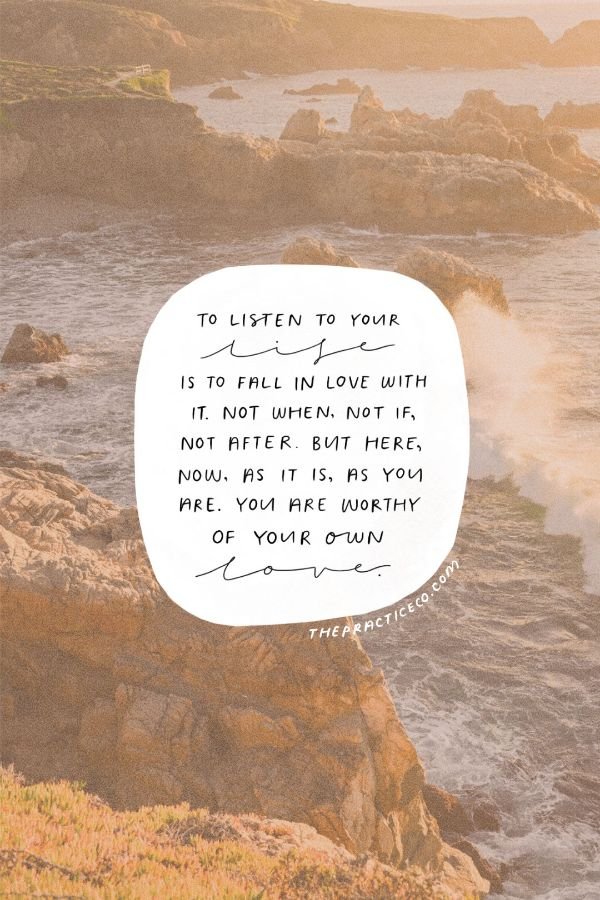 TO LISTEN TO YOUR
life
IS TO FALL IN LOVE WITH
IT. NOT WHEN, NOT IF,
NOT AFTER. BUT HERE,
NOW, AS IT IS, AS YOU
ARE. YOU ARE WORTHY
OF YOUR OWN
love.
THEPRACTICECO.COM